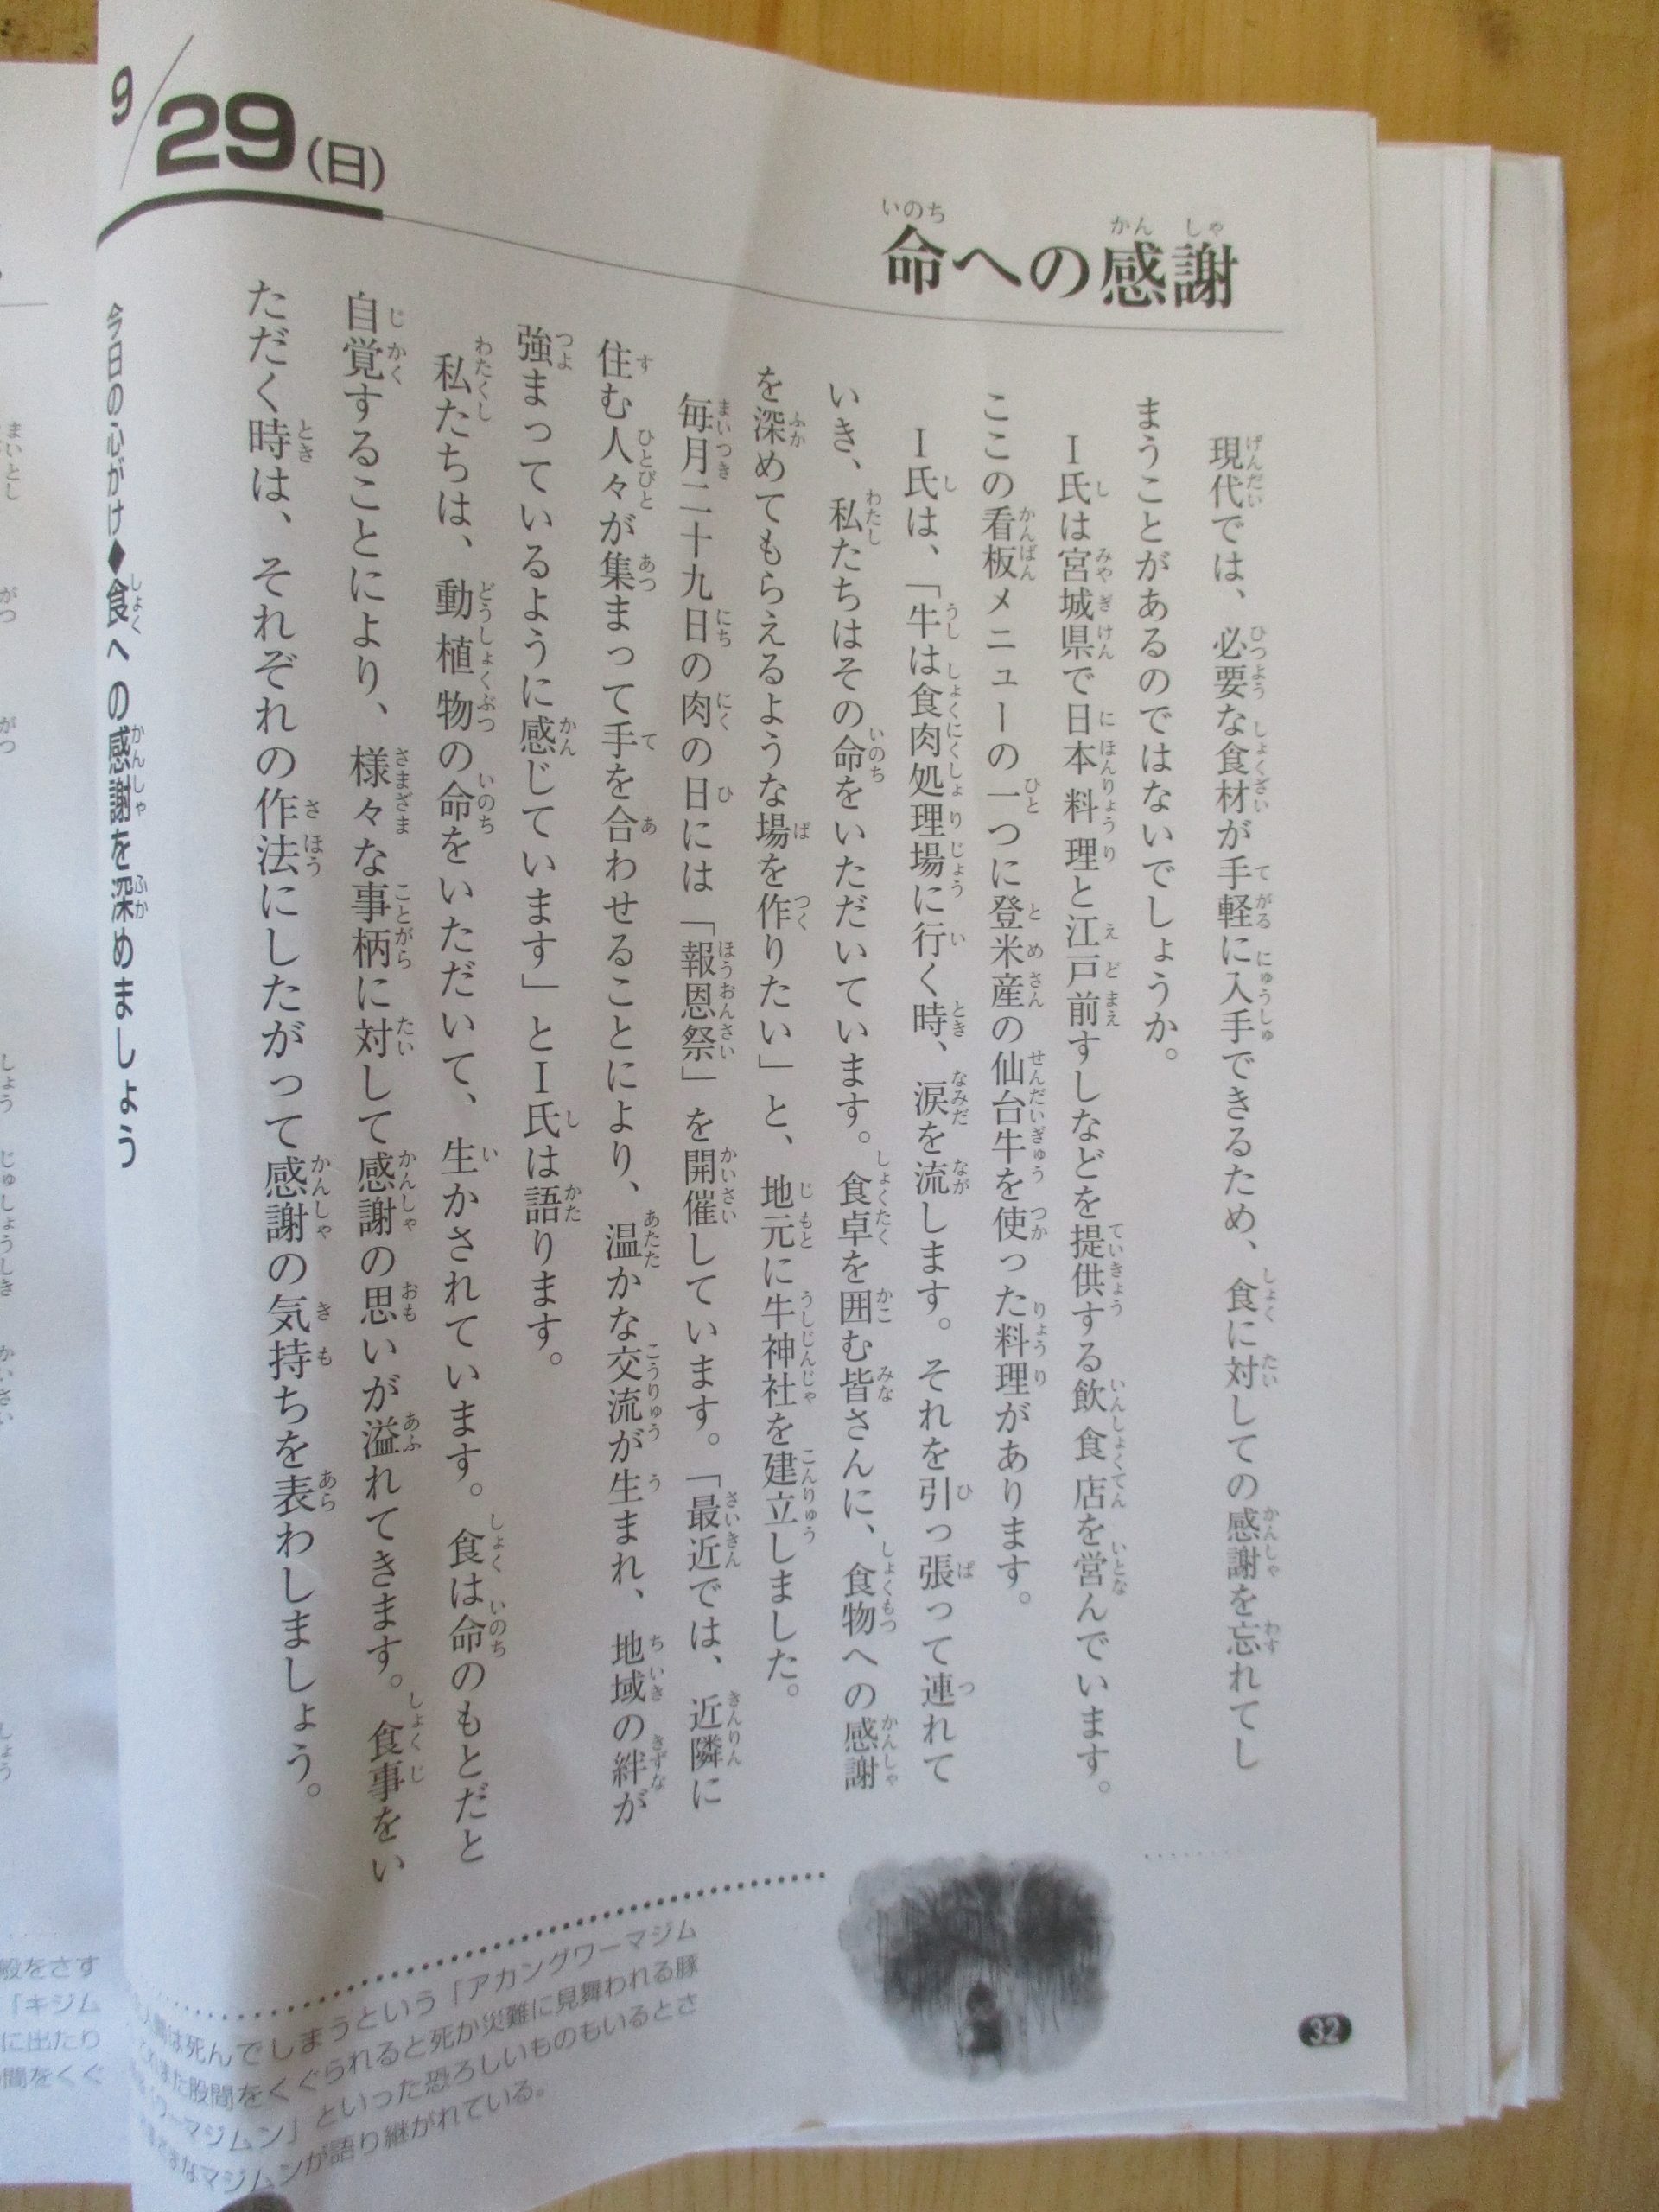 命への感謝
現代では、必要な食材が手軽に入手できるため、食に対しての感謝を忘れてし
まうことがあるのではないでしょうか。
I氏は宮城県で日本料理と江戸前すしなどを提供する飲食店を営んでいます。
ここの看板メニューの一つに登米産の仙台牛を使った料理があります。
I氏は、「牛は食肉処理場に行く時、涙を流します。それを引っ張って連れて
いき、私たちはその命をいただいています。食卓を囲む皆さんに、食物への感謝
を深めてもらえるような場を作りたい」と、地元に牛神社を建立しました。
毎月二十九日の肉の日には「報恩祭」を開催しています。「最近では、近隣に
住む人々が集まって手を合わせることにより、温かな交流が生まれ、地域の絆が
強まっているように感じています」とI氏は語ります。
私たちは、動植物の命をいただいて、生かされています。食は命のもとだと
自覚することにより、様々な事柄に対して感謝の思いが溢れてきます。食事をい
ただく時は、それぞれの作法にしたがって感謝の気持ちを表わしましょう。
今日の心がけ◆食への感謝を深めましょう
9/29(日)
は死んでしまうという「アカングワーマジム
また股間をくぐられると死か災難に見舞われる豚
ワーマジムン」といった恐ろしいものもいるとさ
なマジムンが語り継がれている。
32
股をさす
「キジム
に出たり
間をくぐ